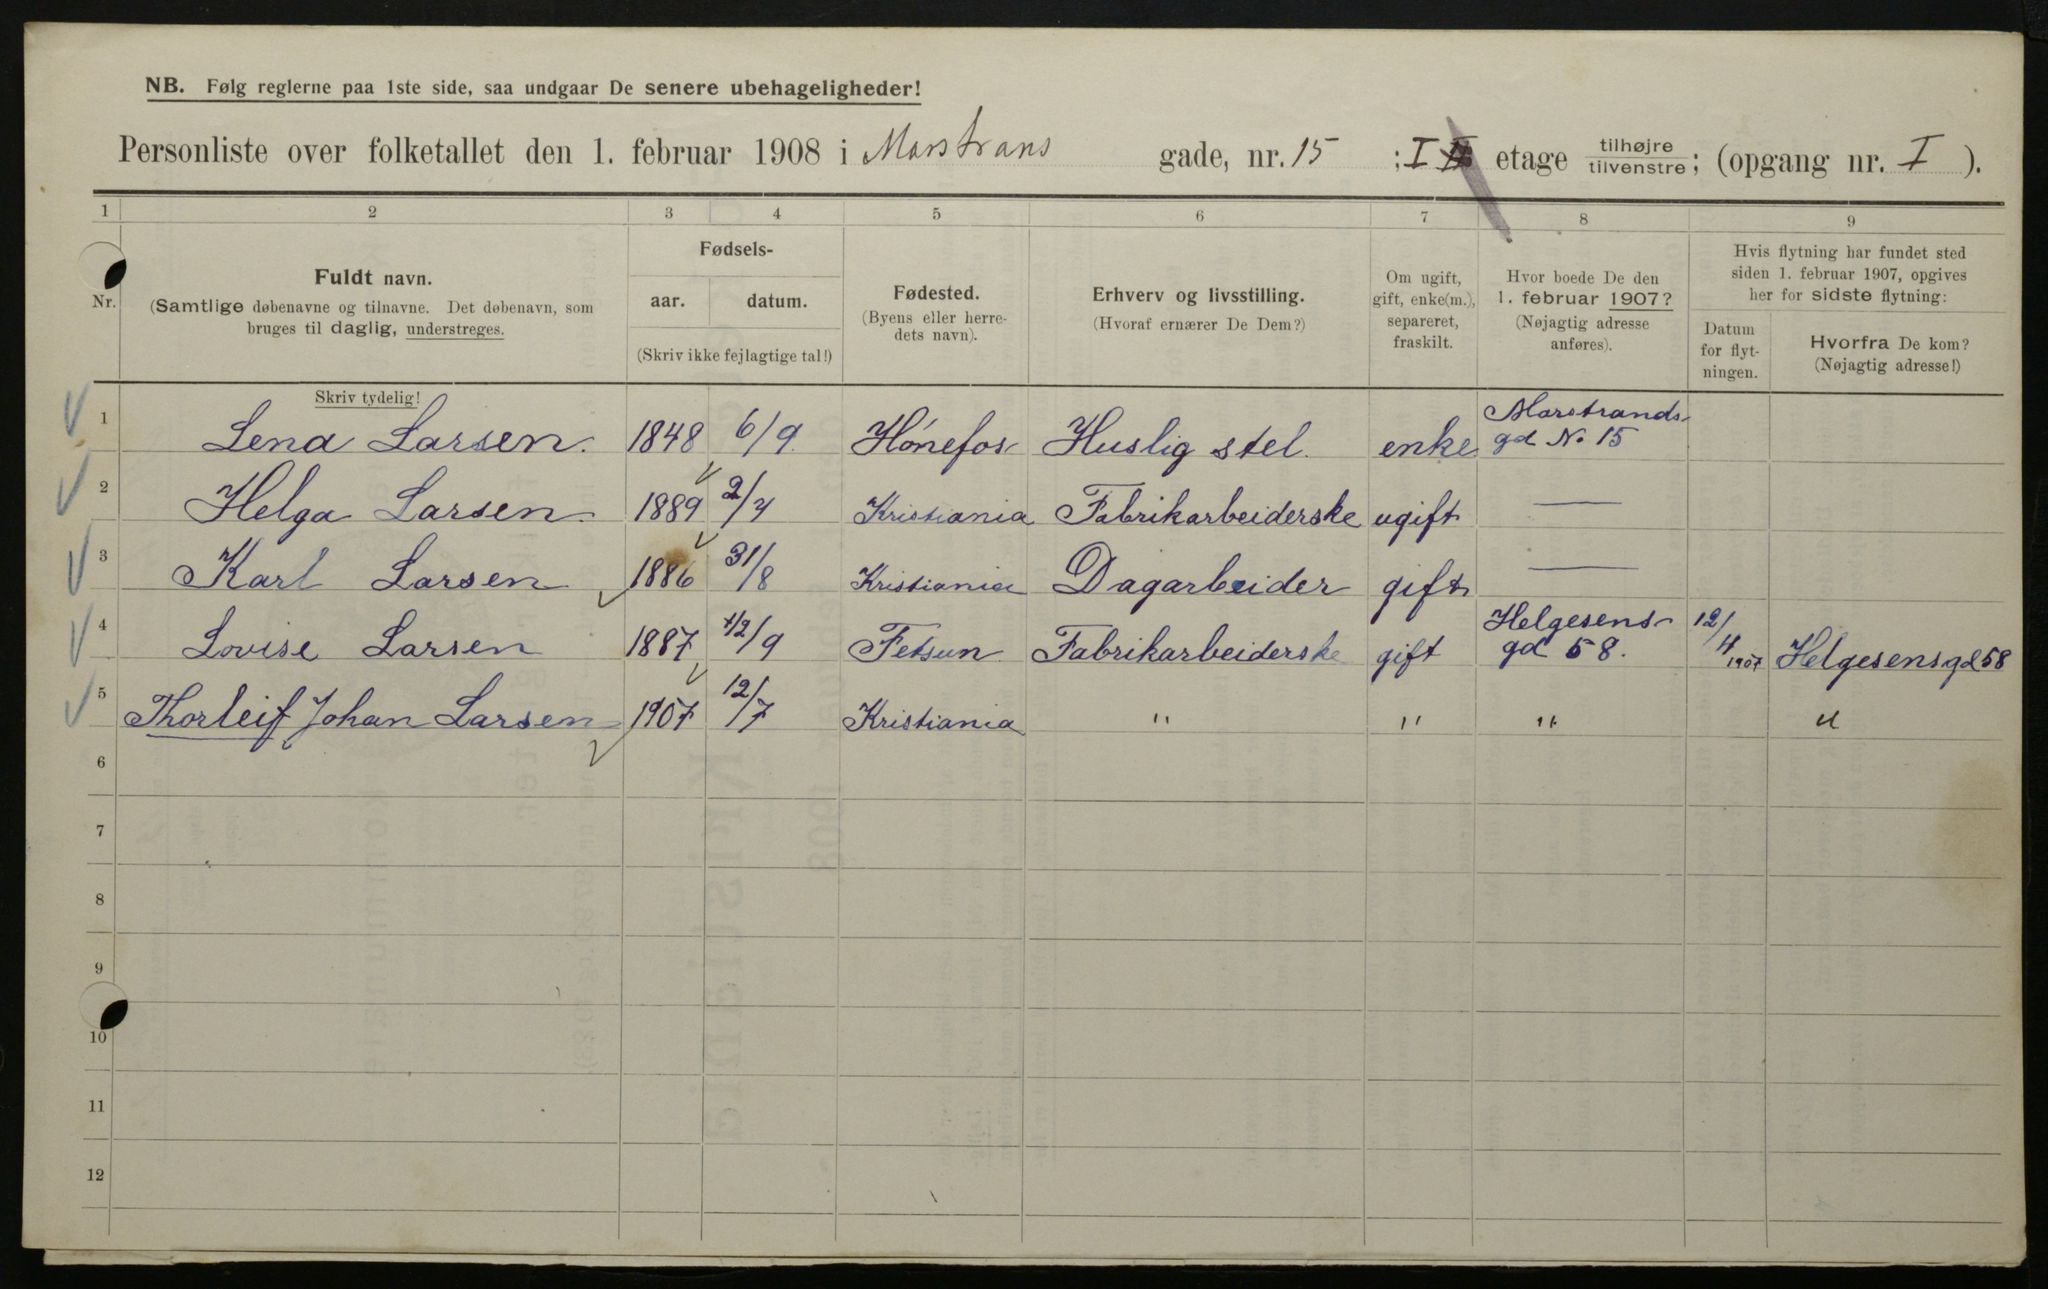 NB. Følg reglerne paa 1ste side, saa undgaar De senere ubehageligheder!
Personliste over folketallet den 1. februar 1908 i Marstrans gade, nr. 15 ; I etage tilhøjre/tilvenstre; (opgang nr. I ).
1 2 3 4 5 6 7 8 9
Nr.
Fuldt navn.
(Samtlige døbenavne og tilnavne. Det døbenavn, som
bruges til daglig, understreges.
Skriv tydelig!
Fødsels-
aar. datum.
(Skriv ikke fejlagtige tal!)
Fødested.
(Byens eller herre-
dets navn).
Erhverv og livsstilling.
(Hvoraf ernærer De Dem?)
Om ugift,
gift, enke(m.),
separeret,
fraskilt.
Hvor boede De den
1. februar 1907?
(Nøjagtig adresse
anføres).
Hvis flytning har fundet sted
siden 1. februar 1907, opgives
her for sidste flytning:
Datum
for flyt-
ningen.
Hvorfra De kom?
(Nøjagtig adresse!)
1 Lena Larsen. 1848 6/9. Hönefos Huslig stel. enke Marstrands-
gd No 15
2 Helga Larsen 1889 2/4 Kristiania Fabrikarbeiderske ugift —
3 Karl Larsen 1886 31/8 Kristiania Dagarbeider gift —
4 Lovise Larsen 1887 12/9 Fetsun Fabrikarbeiderske gift Helgesens-
gd 58. 12/4 1907 Helgesensgd 58
5 Thorleif Johan Larsen 1907 12/7 Kristiania " " " "
6
7
8
9
10
11
12